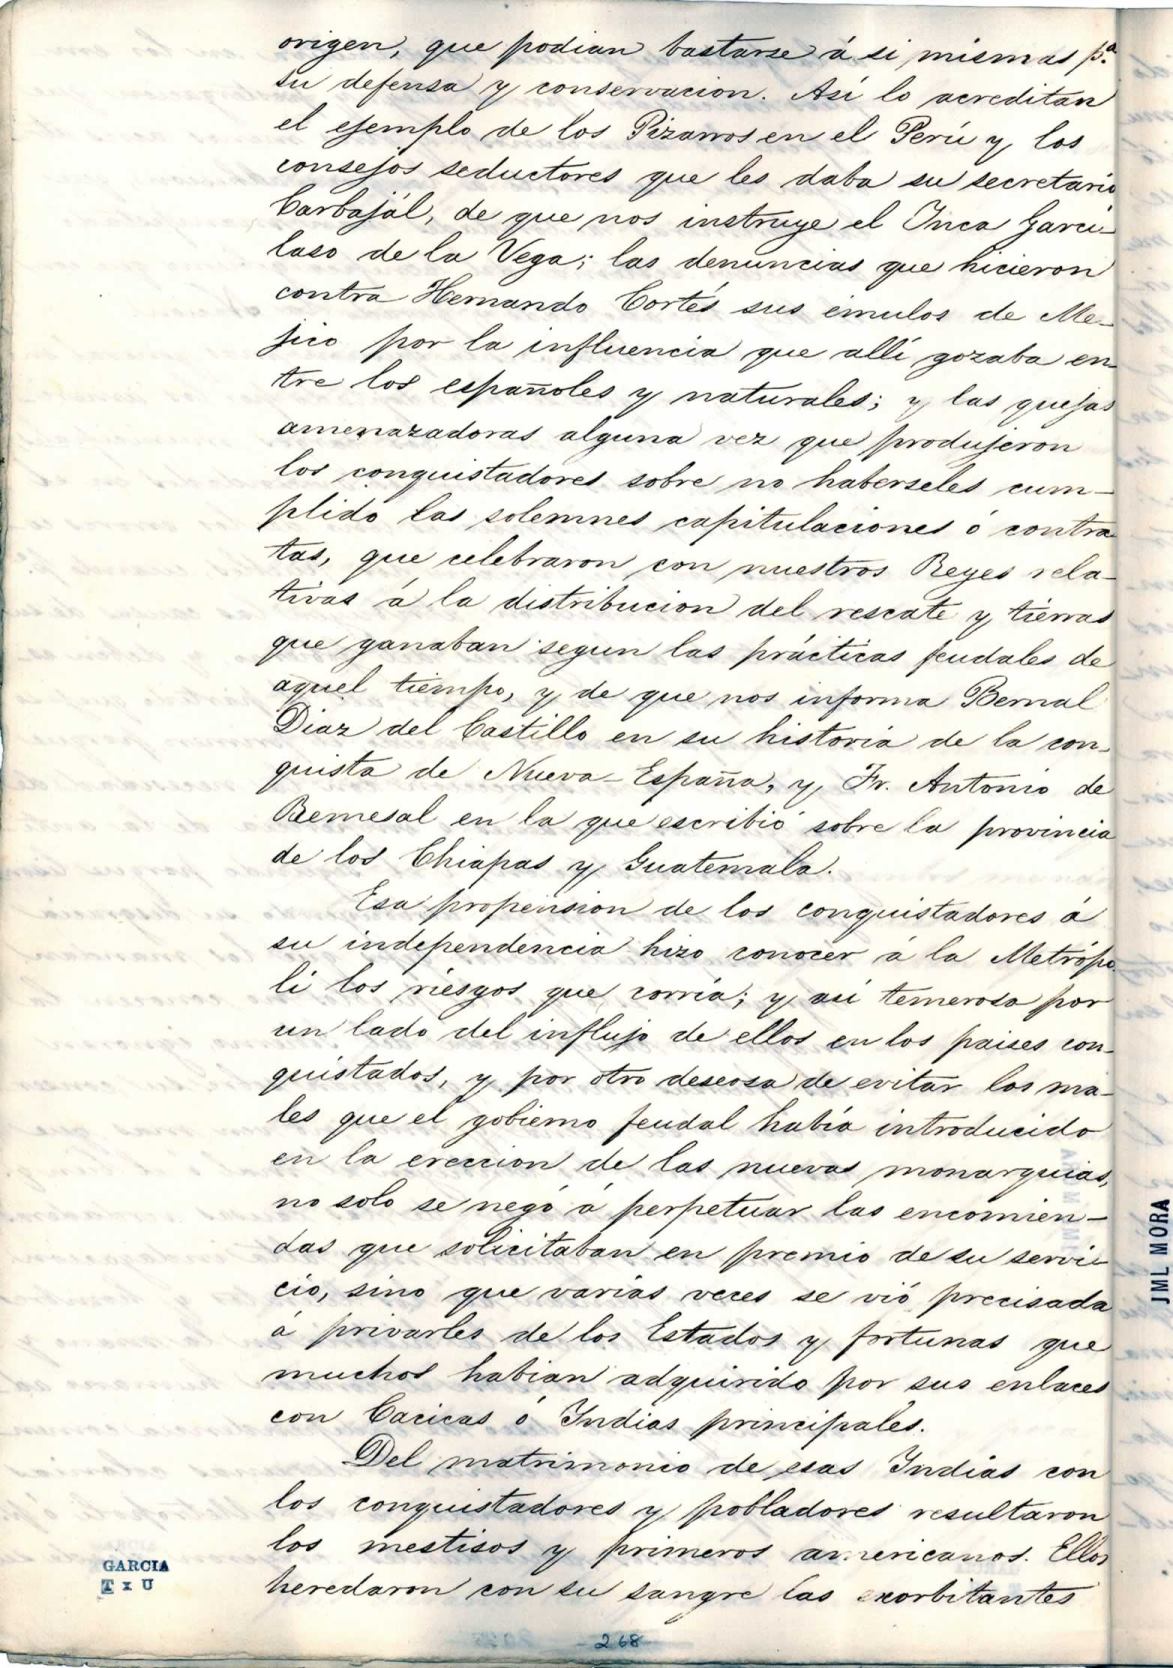 origen, que podian bastarse á si mismas p.ª
su defensa y conservacion. Así lo acreditan
el ejemplo de los Pizarros en el Perú y los
consejos seductores que les daba su secretario
Carbajál, de que nos instruye el Inca Garci-
laso de la Vega; las denuncias que hicieron
contra Hernando Cortés sus émulos de Me-
jico por la influencia que allí gozaba en-
tre los españoles y naturales; y las quejas
amenazadoras alguna vez que produjeron
los conquistadores sobre no haberseles cum-
plido las solemnes capitulaciones ó contra-
tas, que celebraron con nuestros Reyes rela-
tivas á la distribucion del rescate y tierras
que ganaban segun las prácticas feudales de
aquel tiempo, y de que nos informa Bernal
Diaz del Castillo en su historia de la con-
quista de Nueva-España, y Fr. Antonio de
Remesal en la que escribió sobre la provincia
de los Chiapas y Guatemala.
Esa propension de los conquistadores á
su independencia hizo conocer á la Metrópo
li los riesgos que corría; y así temerosa por
un lado del influjo de ellos en los paises con-
quistados, y por otro deseosa de evitar los ma-
les que el gobierno feudal había introducido
en la ereccion de las nuevas monarquias,
no solo se negó á perpetuar las encomien-
das que solicitaban en premio de su servi-
cio, sino que varias veces se vió precisada
á privarles de los Estados y fortunas que
muchos habian adquirido por sus enlaces
con Cacicas ó Indias principales.
Del matrimonio de esas Indias con
los conquistadores y pobladores resultaron
los mestisos y primeros americanos. Ellos
heredaron con su sangre las exorbitantes
GARCIA
T x U
268
JML MORA